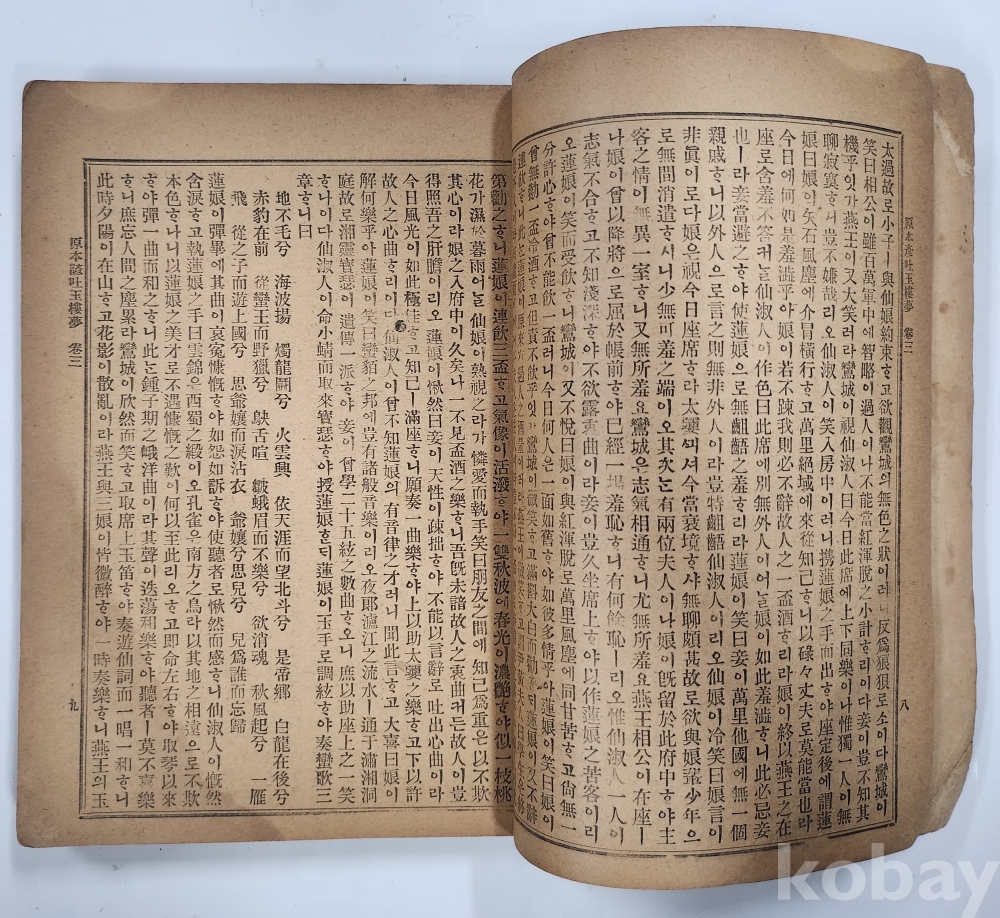 原本諺吐玉樓夢 卷三 八
太過故로小子ㅣ與仙娘約束ᄒᆞ고欲觀鸞城의無色之狀이러니反爲狼狽로소이다鸞城이
笑曰相公이雖百萬軍中에智略이過人이나不能當紅渾脫之小計ᄒᆞ리이다妾이豈不知其
機乎잇가燕王이又大笑러라鸞城이視仙淑人曰今日此席에上下同樂이나惟獨一人이無
聊寂寞ᄒᆞ니豈不嫌哉리오仙淑人이笑入房中이러니携蓮娘之手而出ᄒᆞ야座定後에謂蓮
娘曰娘이矢石風塵에介胄橫行ᄒᆞ고萬里絕域에來從知己ᄒᆞ니以碌々丈夫로莫能當也라
今日에何如是羞澁乎아娘이若不踈我則必不辭故人之一盃酒ᄒᆞ리라娘이終以燕王之在
座로含羞不答이어ᄂᆞᆯ仙淑人이作色曰此席에別無外人이어ᄂᆞᆯ娘이如此羞澁ᄒᆞ니此必忌妾
也ㅣ라妾當避之ᄒᆞ야使蓮娘으로無齟齬之羞ᄒᆞ리라蓮娘이笑曰妾이萬里他國에無一個
親戚ᄒᆞ니以外人으로言之則無非外人이라豈特齟齬仙淑人이리오仙娘이冷笑曰娘言이
非眞이로다娘은視今日座席ᄒᆞ라太䵻ᄭᅴ셔今當衰境ᄒᆞ야無聊頗甚故로欲與娘輩少年으
로無間消遣ᄒᆞ시니少無可羞之端이오其次ᄂᆞᆫ有兩位夫人이나娘이旣留於此府中ᄒᆞ야主
客之情이無異一室ᄒᆞ니又無所羞요鸞城은志氣相通ᄒᆞ니尤無所羞요燕王相公이在座ㅣ
나娘이曾以降將으로屈於帳前ᄒᆞ야已經一塲羞恥ᄒᆞ니有何餘恥ㅣ리오惟仙淑人一人이
志氣不合ᄒᆞ고不知淺深ᄒᆞ야不欲露衷曲이라ᄒᆞ니妾이豈久坐席上ᄒᆞ야以作蓮娘之苦客이리
오蓮娘이笑而受飮ᄒᆞ니鸞城이又不悅曰娘이與紅渾脫로萬里風塵에同甘苦ᄒᆞ고尙無一
分許心ᄒᆞ야曾不能飮一盃러니今日何人은一面如舊ᄒᆞ야如彼多情乎아仙娘이笑曰娘이
曾無勸一盃冷酒ᄒᆞ고但責不飮乎잇가鸞城이微笑ᄒᆞ고滿酌大白而勸
原本諺吐玉樓夢 卷三 九
第勸之ᄒᆞ니蓮娘이連飮三盃ᄒᆞ고氣像이活潑ᄒᆞ야一雙秋波에春光이濃艶ᄒᆞ야似一枝桃
花가濕於暮雨어ᄂᆞᆯ仙娘이熟視之라가憐愛而執手笑曰朋友之間에知己爲重은以不欺
其心이라娘之入府中이久矣나一不見盃酒之樂ᄒᆞ니吾旣未諳故人之衷曲이어든故人이豈
得照吾之肝膽이리오蓮娘이愀然曰妾이天性이疎拙ᄒᆞ야不能以言辭로吐出心曲이라
今日風光이如此極佳ᄒᆞ고知己ㅣ滿座ᄒᆞ니願奏一曲樂ᄒᆞ야上以助太䵻之樂ᄒᆞ고下以許
故人之心曲ᄒᆞ리이다仙淑人이曾不知蓮娘의有音律之才러니聞此言ᄒᆞ고大喜曰娘이
解何樂乎아蓮娘이笑曰蠻貊之邦에豈有諸般音樂이리오夜郞瀘江之流水ㅣ通于瀟湘洞
庭故로湘靈寶瑟이遺傳一派ᄒᆞ야妾이曾學二十五絃之數曲ᄒᆞ오니庶以助座上之一笑
ᄒᆞ나이다仙淑人이命小蜻而取來寶瑟ᄒᆞ야授蓮娘ᄒᆞᆫᄃᆡ蓮娘이玉手로調絃ᄒᆞ야奏蠻歌三
章ᄒᆞ니曰
地不毛兮 海波揚 燭龍鬪兮 火雲興 依天涯而望北斗兮 是帝鄕 白龍在後兮
赤豹在前 從蠻王而野獵兮 鴃舌喧 皺蛾眉而不樂兮 欲消魂 秋風起兮 一雁
飛 從之子而遊上國兮 思爺孃而淚沾衣 爺孃兮思兄兮 兄爲誰而忘歸
蓮娘이彈畢에其曲이哀寃慷慨ᄒᆞ야如怨如訴ᄒᆞ야使聽者로愀然而感ᄒᆞ니仙淑人이慨然
含淚ᄒᆞ고執蓮娘之手曰雲錦은西蜀之緞이오孔雀은南方之鳥라以其地之相遠으로不欺
本色ᄒᆞ나니以蓮娘之美才로不遇慷慨之歎이何以至此리오ᄒᆞ고卽命左右ᄒᆞ야取琴以來
ᄒᆞ야彈一曲而和之ᄒᆞ니此ᄂᆞᆫ鍾子期之峨洋曲이라其聲이迭蕩和樂ᄒᆞ야聽者ㅣ莫不喜樂
ᄒᆞ니庶忘人間之塵累라鸞城이欣然而笑ᄒᆞ고取席上玉笛ᄒᆞ야奏遊仙詞而一唱一和ᄒᆞ니
此時夕陽이在山ᄒᆞ고花影이散亂이라燕王與三娘이皆微醉ᄒᆞ야一時奏樂ᄒᆞ니燕王의玉
kobay